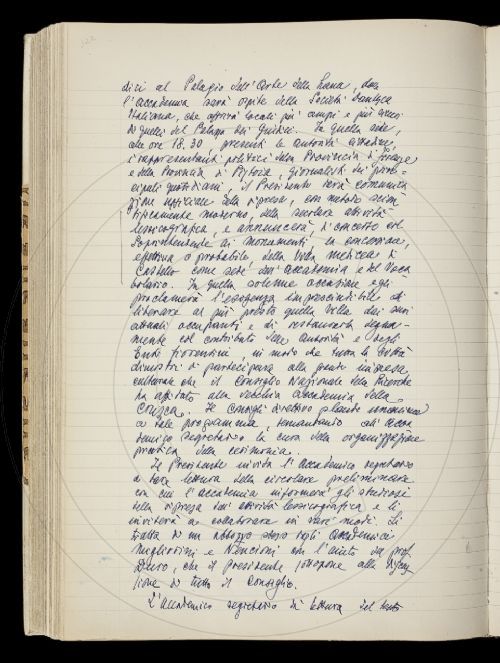 dici al Palagio dell'Arte della Lana, dove
l'Accademia sarà ospite della Società Dantesca
Italiana, che offrirà locali più ampi e più
di quelli del Palagio dei Giudici. In quella sede,
alle ore 18.30, presenti le autorità cittadine,
i rappresentanti politici della Provincia di Firenze
e della Provincia di Pistoia, giornalisti dei prin-
cipali quotidiani, il Presidente darà comunica
zione ufficiale della ripresa, con metodo scien
tificamente moderno, della secolare attività
lessicografica, e annuncerà, di concerto col
Soprintendente ai Monumenti la concessione,
effettiva o probabile, della Villa medicea di
Castello come sede dell'Accademia e del Voca
bolario. In quella solenne occasione egli
proclamerà l'esigenza imprescindibile di
liberare al più presto quella Villa dai suoi
attuali occupanti e di restaurarla degna-
mente col contributo delle autorità e degli
Enti fiorentini in modo che tutta la città
dimostri di partecipare alla grande impresa
culturale che il Consiglio Nazionale delle Ricerche
ha affidato alla vecchia Accademia della
Crusca. Il Consiglio direttivo plaude unanime
a tale programma, demandando all'Acca
demico Segretario la cura della organizzazione
pratica della cerimonia.
Il Presidente invita l'Accademico segretario
a dare lettura della circolare preliminare
con cui l'Accademia informerà gli studiosi
della ripresa dell'attività lessicografica e li
inviterà a collaborare in vari modi. Si
tratta di un abbozzo steso dagli Accademici
Migliorini e Nencioni con l'aiuto del prof.
Duro, che il Presidente sottopone alla discus
sione di tutto il Consiglio.
L'Accademico segretario dà lettura del testo